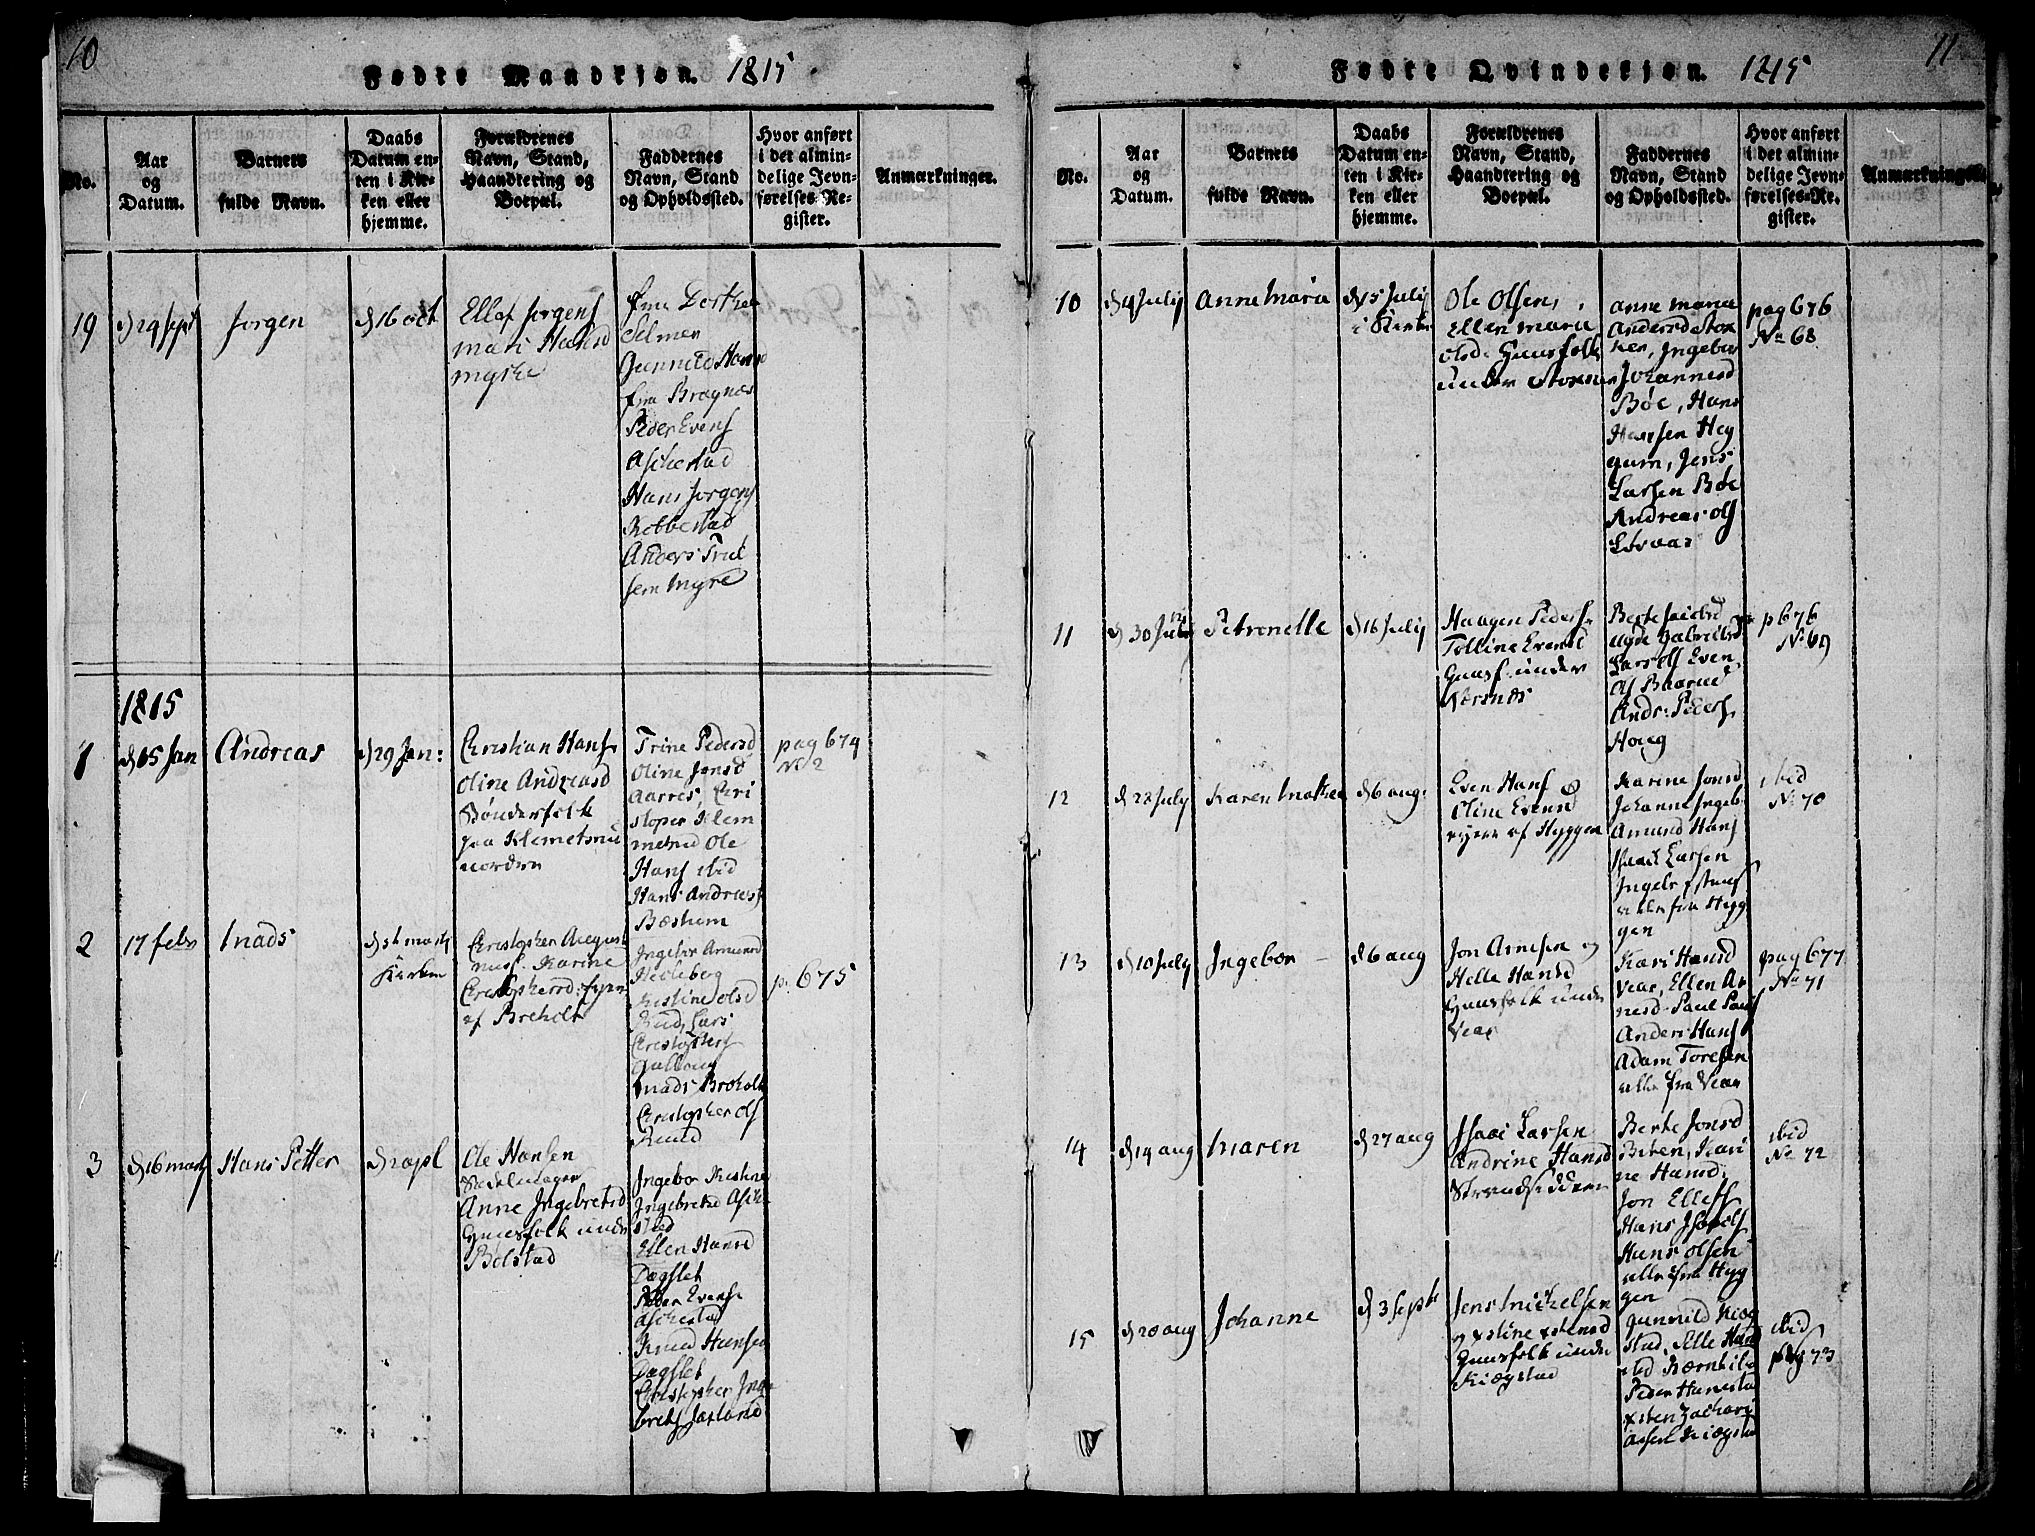 10
Fødte Mandkjøn. 1815
No.
Aar
og
Datum.
Barnets
fulde Navn.
Daabs
Datum en-
ten i Kir-
ken eller
hjemme.
Forældrenes
Navn, Stand,
Haandtering og
Boepæl.
Faddernes
Navn, Stand
og Opholdssted.
Hvor anført
i det almin-
delige Jevn-
førelses-Re-
gister.
Anmærkninger.
19
d 29 sept
Jørgen
d 16 oct
Ellef Jørgens
Mari Hansd
Myhre
fru Dorthe
Selmer
Gunnild Hans
fra Bragnæs
Peder Evens
Aschestad
Hans Jørgens
Kebbestad
Anders Trul
sen Myre
1815
1
d 15 Jan
Andreas
d 29 Jan:
Christian Hans
Oline Andreasd
Bønderfolk
paa Klemetsrud
nordre
Trine Pedersd
Oline Jensd
Aarres, Chri
stopher Klem
metsrud Ole
Hans ibid
Hans Andreas
Bæshem
pag 674
No 2
2
17 febr
Mads
Kirken
Christopher August
Karine
Christophersd:
af Breholt
Ingebor Amunsd
Hedeberg
Kistine Olsd
Rud, Lars
Christophers
Gulloug
Mads Breholt
Christopher Ols
Rud
p. 675
3
d 16 mart
Hans Petter
d 2 apl
Ole Hansen
Sadelmager
Anne Ingebretsd
Huusfolk unde
Bølstad
Ingebor Kistine
Ingebretsd Asche
stad
Ellen Hansd
Dagslet
Peder Evens
Aschestad
Knud Hansen
Dagslet
Christopher Inge
brets Jaxland
11
Fødte Qvindekjøn. 1815
No.
Aar
og
Datum.
Barnets
fulde Navn.
Daabs
Datum en-
ten i Kir-
ken eller
hjemme.
Forældrenes
Navn, Stand,
Haandtering og
Boepæl.
Faddernes
Navn, Stand
og Opholdssted.
Hvor anført
i det almin-
delige Jevn-
førelses-Re-
gister.
Anmærkninger.
10
d 4 July
Anne Maria
d 15 July
i Kirke
Ole Olsen,
Ellen Maria
Olsd. Huusfolk
under Stoxne
Anne Maria
Andersd Stox
nen, Ingebor
Johannesd
Bøe, Hans
Hansen Heg
gum, Jens
Larsen Bøe
Andreas Ols
Lørvas
pag 676
No 68
11
d 30 July
Petronelle
d 16 July
Haagen Peders
Tolline Evensd
Huusf. under
Nærsnes
Lars Ols Even
Andr: Peders
Houg
p 676
No 69
12
d 28 July
Karen Mathea
d 6 aug:
Even Hans &
Oline Evensd
eiere af Hyggen
Karine Jonsd
Johanne Ingeb
Amund Hans
Isaac Larsen
alle fra Hyg
gen
ibid
No 70
13
d 10 July
Ingebor
d 6 aug
Jon Arnesen og
Helle Hansd
Huusfolk unde
Vear
Kari Hansd
Vear, Ellen Ar
nesd. Paul Pauls
Anders Hans
Adam Toresen
alle fra Vear
pag 677
No 71
14
d 14 aug
Maren
d 27 aug
Isaac Larsen
Andrine Hansd
Strandsiddere
Berte Jonsd
Biten, Kari
ne Hansd
Jon Ellefs
Hans Isacks
Hans Olsen
alle fra Hyg
gen
ibid
No 72
15
d 20 aug
Johanne
d 3 Sept
Jens Mickelsen
og xstine xstensd
Huusfolk unde
Kiøgstad
Gunnild Kiøg
stad, Elle Hans
Peder Hanestad
xsten Zachari
assen Kiøgstad
ibid
pag 73